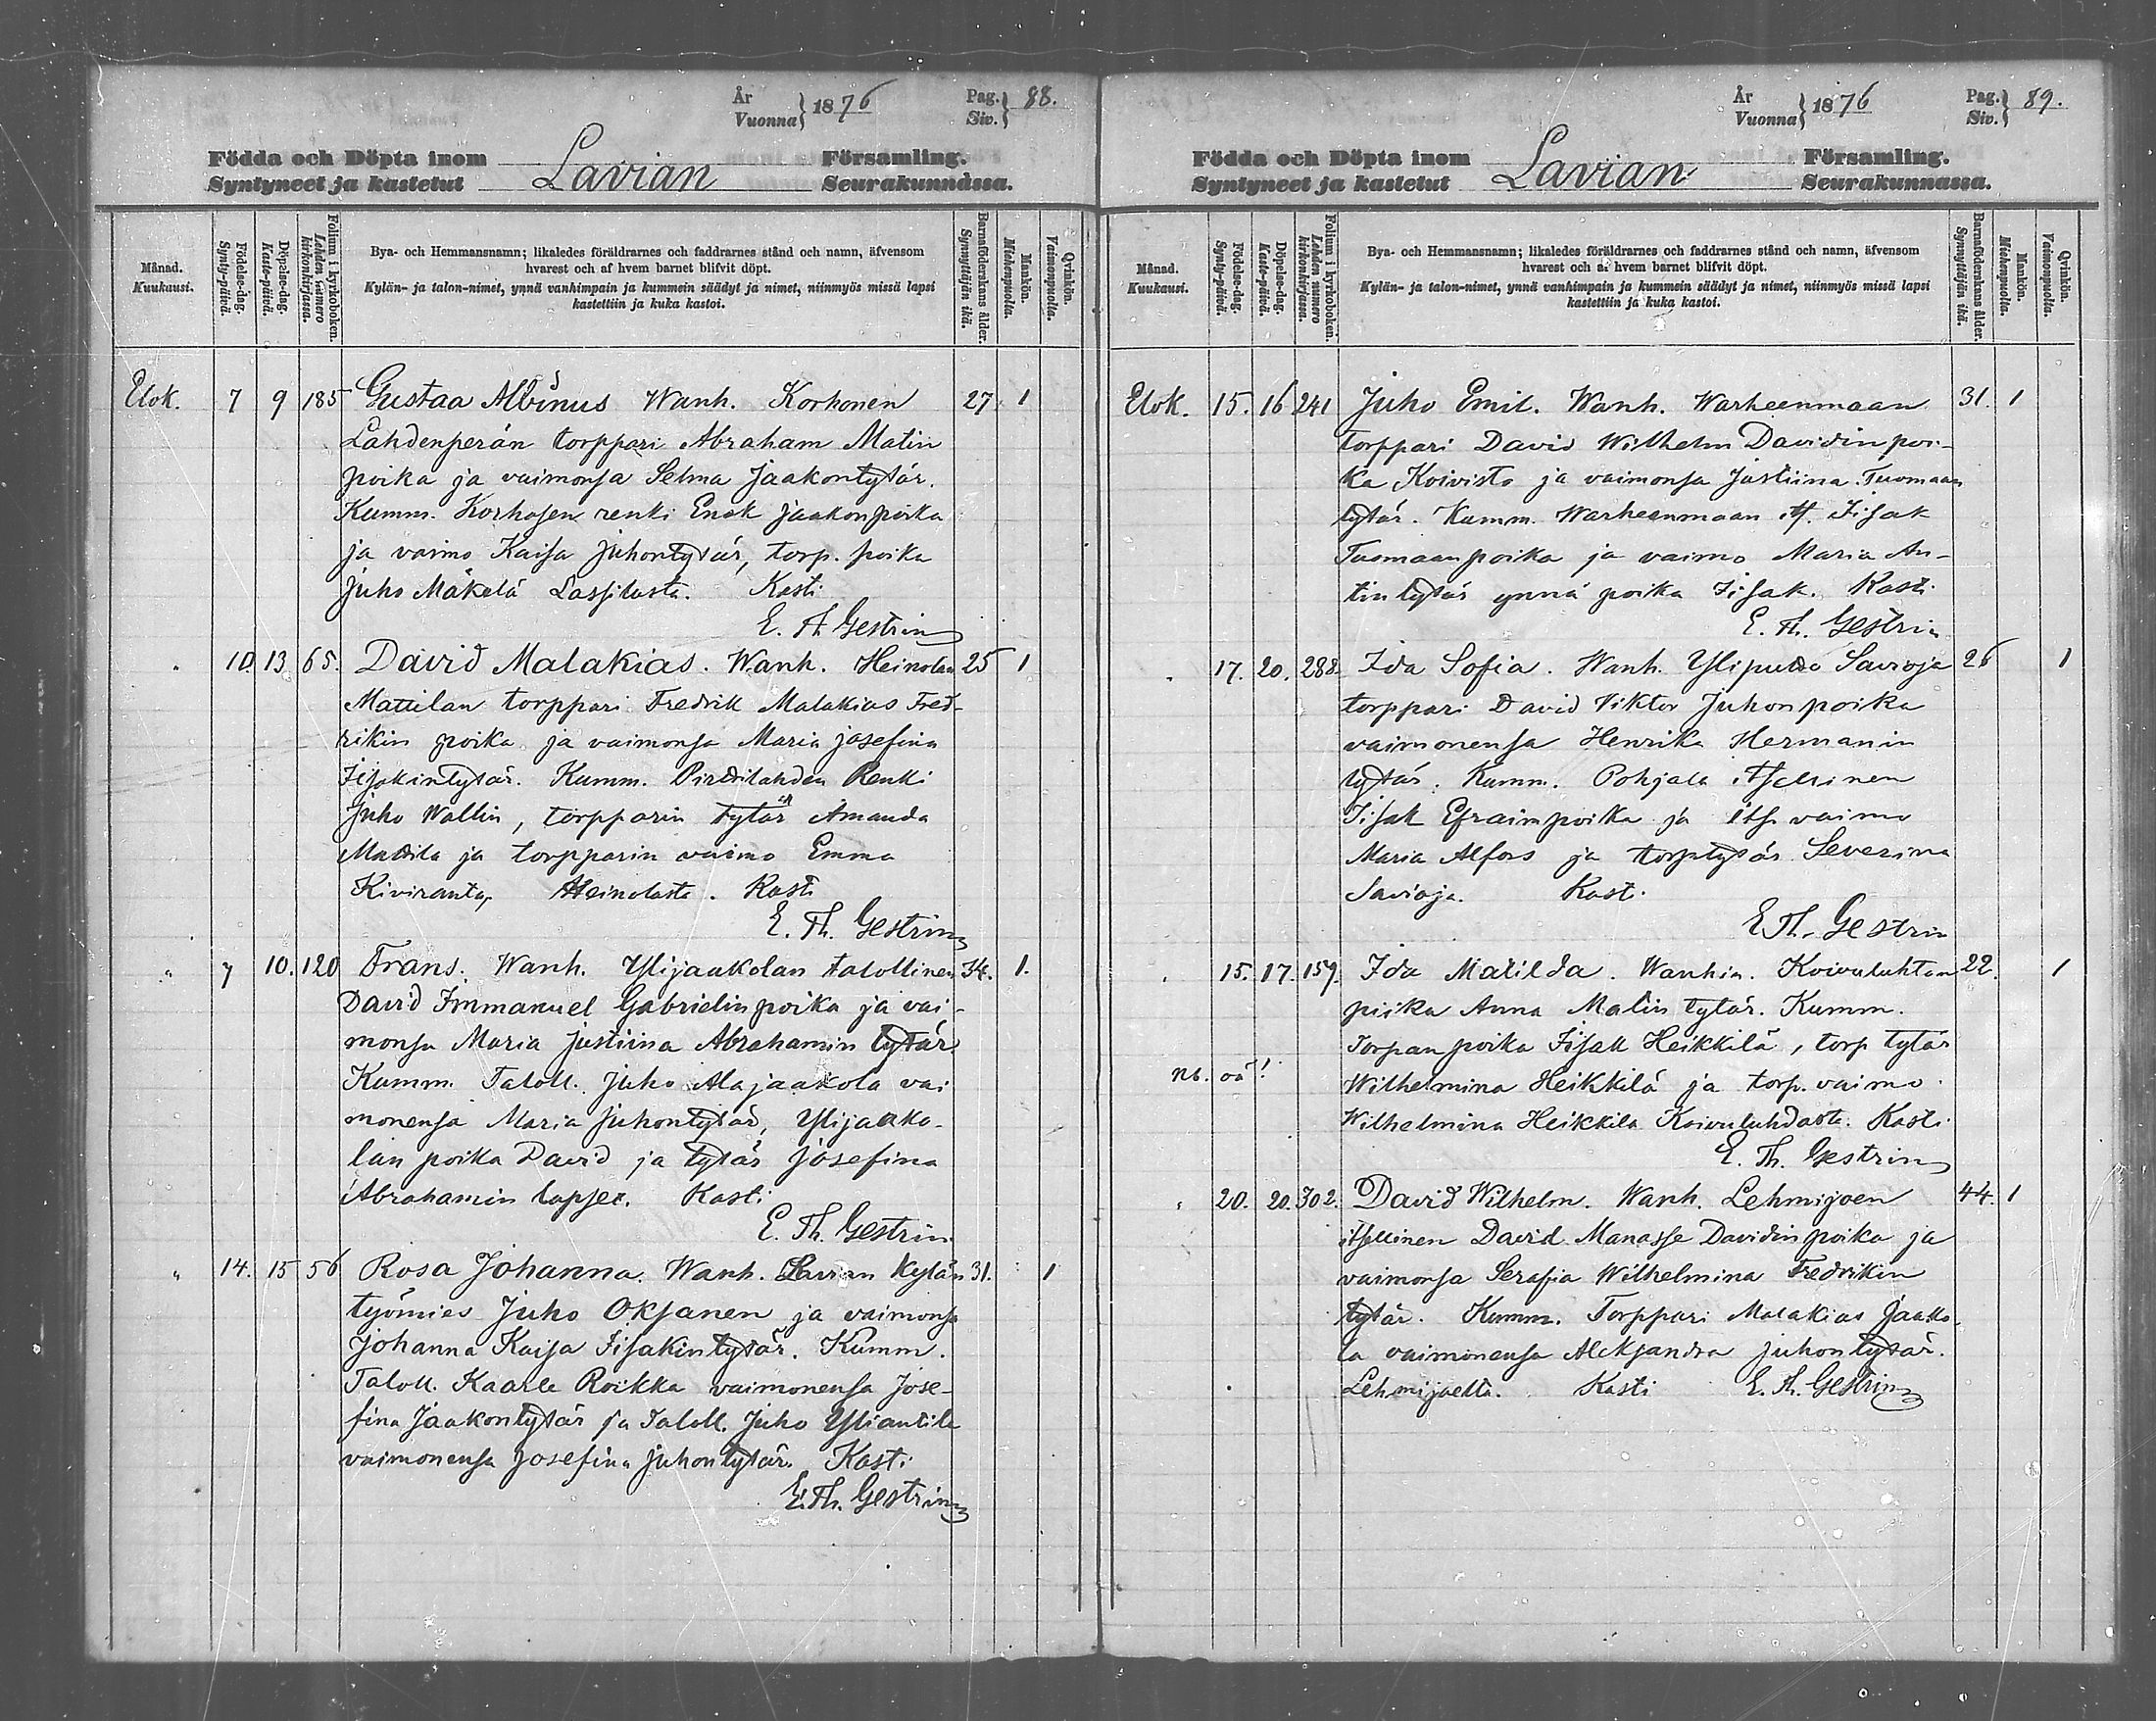 År
Vuonna } 1876
Pag.
Siv. } 88.
Födda och Döpta inom Lavian Församling.
Syntyneet ja kastetut Seurakunnassa.
Månad.
Kuukausi.
Födelse-dag.
Synty-päivä.
Döpelse-dag.
Kaste-päivä.
Folium i kyrkoboken.
Lehden numero
kirkonkirjassa.
Bya- och Hemmansnamn; likaledes föräldrarnes och faddrarnes stånd och namn, äfvensom
hvarest och af hvem barnet blifvit döpt.
Kylän- ja talon-nimet, ynnä vanhimpain ja kummein säädyt ja nimet, niinmyös missä lapsi
kastettiin ja kuka kastoi.
Barnaföderskans ålder.
Synnyttäjän ikä.
Mankön.
Miehenpuolta.
Qvinkön.
Vaimonpuolta.
Elok. 7 9 185 Gustaa Albinus Wanh. Korhonen 27 1
Lahdenperän torppari Abraham Matin
poika ja vaimonsa Selma Jaakontytär.
Kumm. Korhosen renki Enok Jaakonpoika
ja vaimo Kaisa Juhontytär, torp. poika
Juho Mäkelä Lassilasta. Kasti
E. Th Gestrin
" 10. 13 65. David Malakias. Wanh. Heinolan 25 1
Mattilan torppari Fredrik Malakias Fred-
rikin poika ja vaimonsa Maria Josefina
Iisakintytär. Kumm. Renki
Juho Wallin, torpparin tytär Amanda
Mattila ja torpparin vaimo Emma
Kiviranta, Heinolasta. Kasti
E. Th. Gestrin
" 7 10. 120 Frans. Wanh. Ylijaakolan talollinen 34. 1.
David Immanuel Gabrielinpoika ja vai-
monsa Maria Justiina Abrahamin tytär
Kumm. Taloll. Juho Alajaakola vai
monensa Maria Juhontytär, Ylijaako-
lan poika David ja tytär Josefina
Abrahamin lapset. Kasti
E. Th. Gestrin
" 14. 15 56 Rosa Johanna. Wanh. Lavian kylän 31. 1
työmies Juho Oksanen ja vaimonsa
Johanna Kaisa Iisakintytär. Kumm.
Taloll. Kaarle Roikka vaimonensa Jose-
fina Jaakontytär ja Taloll. Juho Yliantila
vaimonensa Josefina Juhontytär. Kasti
E. Th. Gestrin
År
Vuonna } 1876
Pag.
Siv. } 89.
Födda och Döpta inom Lavian Församling.
Syntyneet ja kastetut Seurakunnassa.
Månad.
Kuukausi.
Födelse-dag.
Synty-päivä.
Döpelse-dag.
Kaste-päivä.
Folium i kyrkoboken.
Lehden numero
kirkonkirjassa.
Bya- och Hemmansnamn; likaledes föräldrarnes och faddrarnes stånd och namn, äfvensom
hvarest och af hvem barnet blifvit döpt.
Kylän- ja talon-nimet, ynnä vanhimpain ja kummein säädyt ja nimet, niinmyös missä lapsi
kastettiin ja kuka kastoi.
Barnaföderskans ålder.
Synnyttäjän ikä.
Mankön.
Miehenpuolta.
Qvinkön.
Vaimonpuolta.
Elok. 15. 16 241 Juho Emil. Wanh. Warheenmaan 31. 1
torppari David Wilhelm Davidin poi-
ka Koivisto ja vaimonsa Justiina Tuomaan
tytär. Kumm. Warheenmaan its. Iisak
Tuomaanpoika ja vaimo Maria An-
tintytär ynnä poika Iisak. Kasti
E. Th. Gestrin
" 17. 20. 288. Ida Sofia. Wanh. Savioja 26 1
torppari David Viktor Juhonpoika
vaimonensa Henrika Hermanin
tytär. Kumm. Pohjala itsellinen
Iisak Efraimpoika ja its. vaimo
Maria Alfors ja torptytär Severina
Savioja. Kasti
E. Th. Gestrin
" 15. 17. 159. Ida Matilda. Wanhin. Koivuluhtan 22. 1
piika Anna Matin tytär. Kumm.
Torpan poika Iisak Heikkilä, torp tytär
Nb. oä! Wilhelmina Heikkilä ja torp. vaimo
Wilhelmina Heikkilä Koivuluhdasta. Kasti
E. Th. Gestrin
" 20. 20. 302. David Wilhelm. Wanh. Lehmijoen 44. 1
itsellinen David Manasse Davidinpoika ja
vaimonsa Serafia Wilhelmina Fredrikin
tytär. Kumm. Torppari Malakias Jaako-
la vaimonensa Aleksandra Juhontytär.
Lehmijoelta. Kasti E. Th. Gestrin